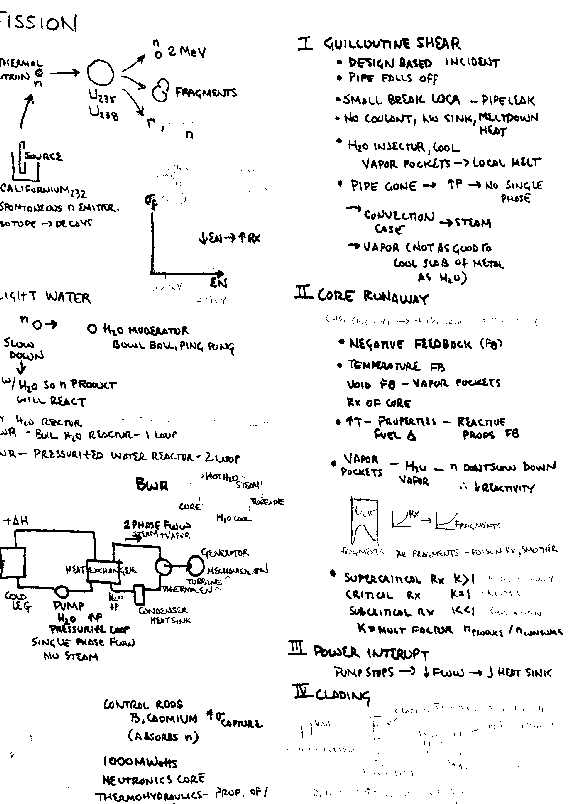 FISSION
THERMAL
n
n
2 MeV
U235
U238
FRAGMENTS
r, n
SOURCE
CALIFORNIUM232
SPONTANEOUS n EMITTER.
ISOTOPE → DECAYS
σf
↓EN → ↑RX
EN
LIGHT WATER
n
H2O MODERATOR
BOWL BALL, PING PONG
SLOW
DOWN
W/H2O SO n PRODUCT
WILL REACT
H2O REACTOR
BWR - BOIL H2O REACTOR - 1 LOOP
PWR - PRESSURITED WATER REACTOR - 2 LOOP
BWR
HOT H2O
STEAM
CORE
TURBINE
H2O COOL
+ΔH
2 PHASE FLOW
STEAM + VAPOR
HEAT EXCHANGER
GENERATOR
MECHANICAL EN
TURBINE
THERMAL EN
COLD
LEG
PUMP
H2O ↑P
PRESSURITE LOOP
SINGLE PHASE FLOW
NO STEAM
CONDENSER
HEAT SINK
CONTROL RODS
B, CADMIUM ↑σCAPTURE
(ABSORBS n)
1000 MWatts
NEUTRONICS CORE
THERMOHYDRAULICS - PROP. OF/
I GUILLOUTINE SHEAR
• DESIGN BASED INCIDENT
• PIPE FALLS OFF
• SMALL BREAK LOCA - PIPE LEAK
• NO COOLANT, NO SINK, MELTDOWN
HEAT
• H2O INJECTOR, COOL
VAPOR POCKETS → LOCAL MELT
• PIPE GONE → ↑P → NO SINGLE
PHASE
→ CONVECTION → STEAM
CASE
→ VAPOR (NOT AS GOOD TO
COOL SLAB OF METAL
AS H2O)
II CORE RUNAWAY
• NEGATIVE FEEDBACK (FB)
• TEMPERATURE FB
VOID FB - VAPOR POCKETS
RX OF CORE
• ↑T - PROPERTIES - REACTIVE
FUEL Δ PROPS FB
• VAPOR - H2O - n DONT SLOW DOWN
POCKETS VAPOR ∴ ↓REACTIVITY
RX → FRAGMENTS
FRAGMENTS
XE FRAGMENTS - POISON RX, SMOTHER
• SUPERCRITICAL RX K>1
CRITICAL RX K=1
SUBCRITICAL RX K<1
K = MULT FACTOR
III POWER INTERUPT
PUMP STOPS → ↓ FLOW → ↓ HEAT SINK
IV CLADING